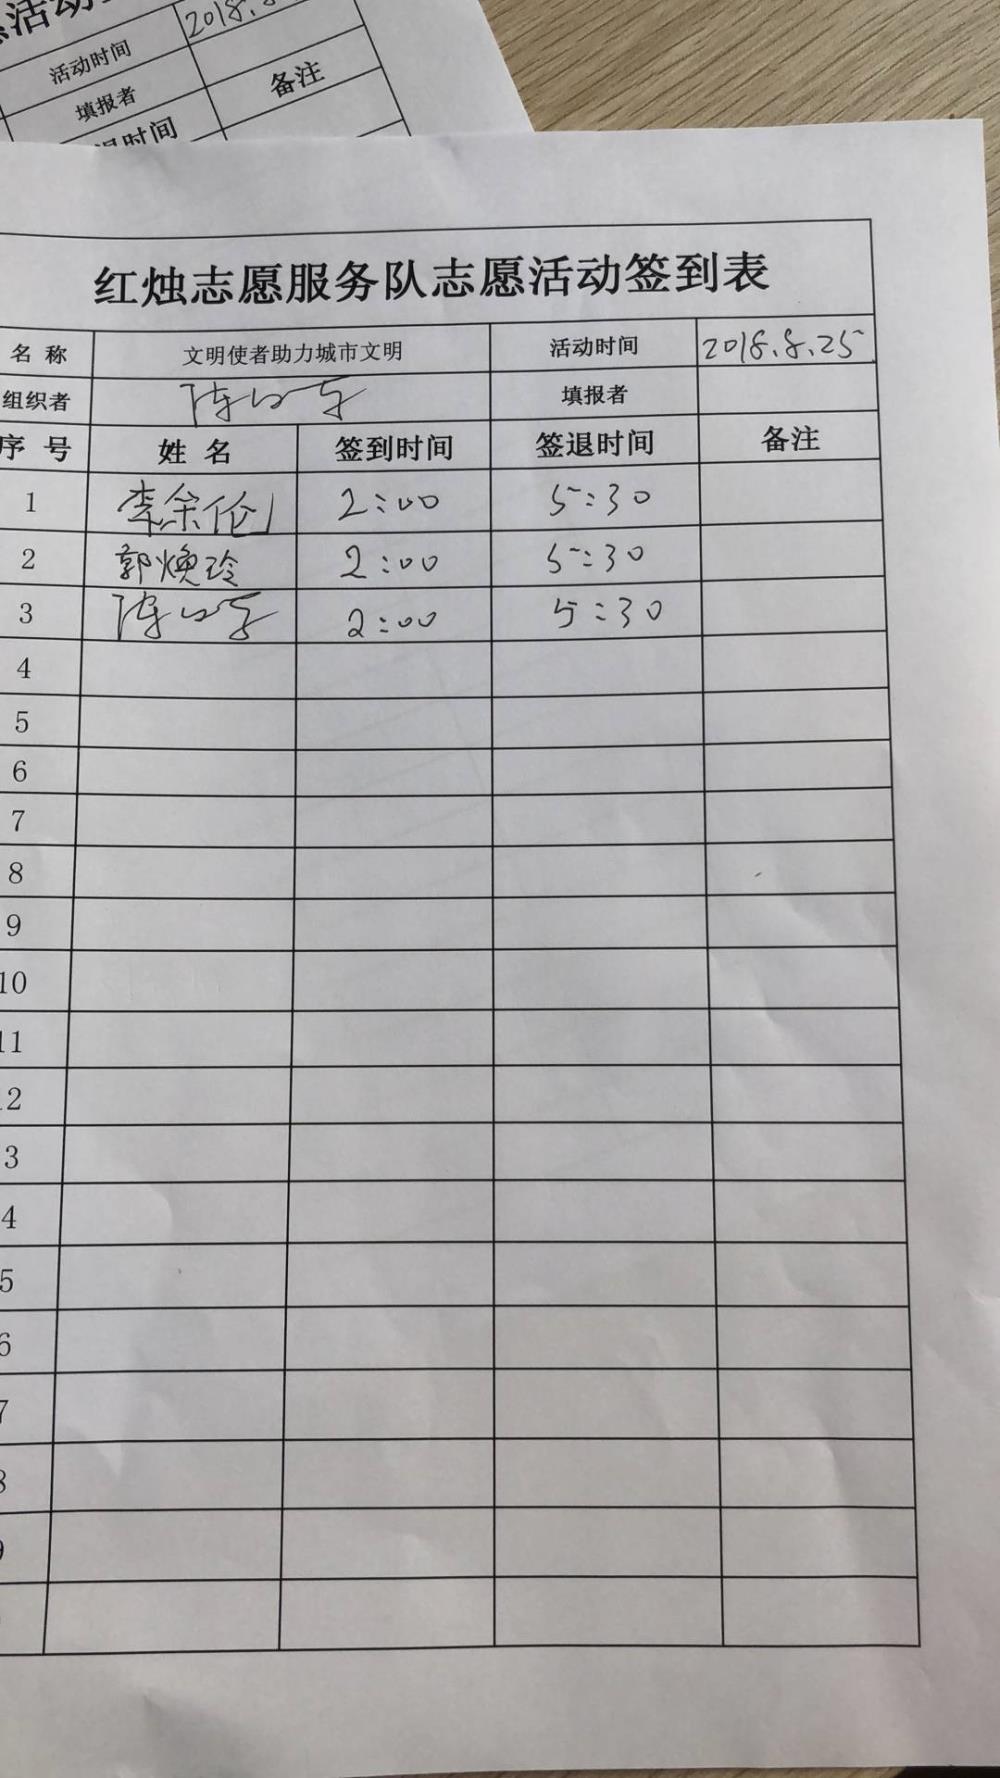 活动时间 2018.8
填报者
备注
退时间
红烛志愿服务队志愿活动签到表
名 称 文明使者助力城市文明 活动时间 2018.8.25
组织者 填报者
序 号 姓 名 签到时间 签退时间 备注
1 李余伦 2:00 5:30
2 郭焕玲 2:00 5:30
3 2:00 5:30
4
5
6
7
8
9
10
11
12
3
4
5
6
7
8
9